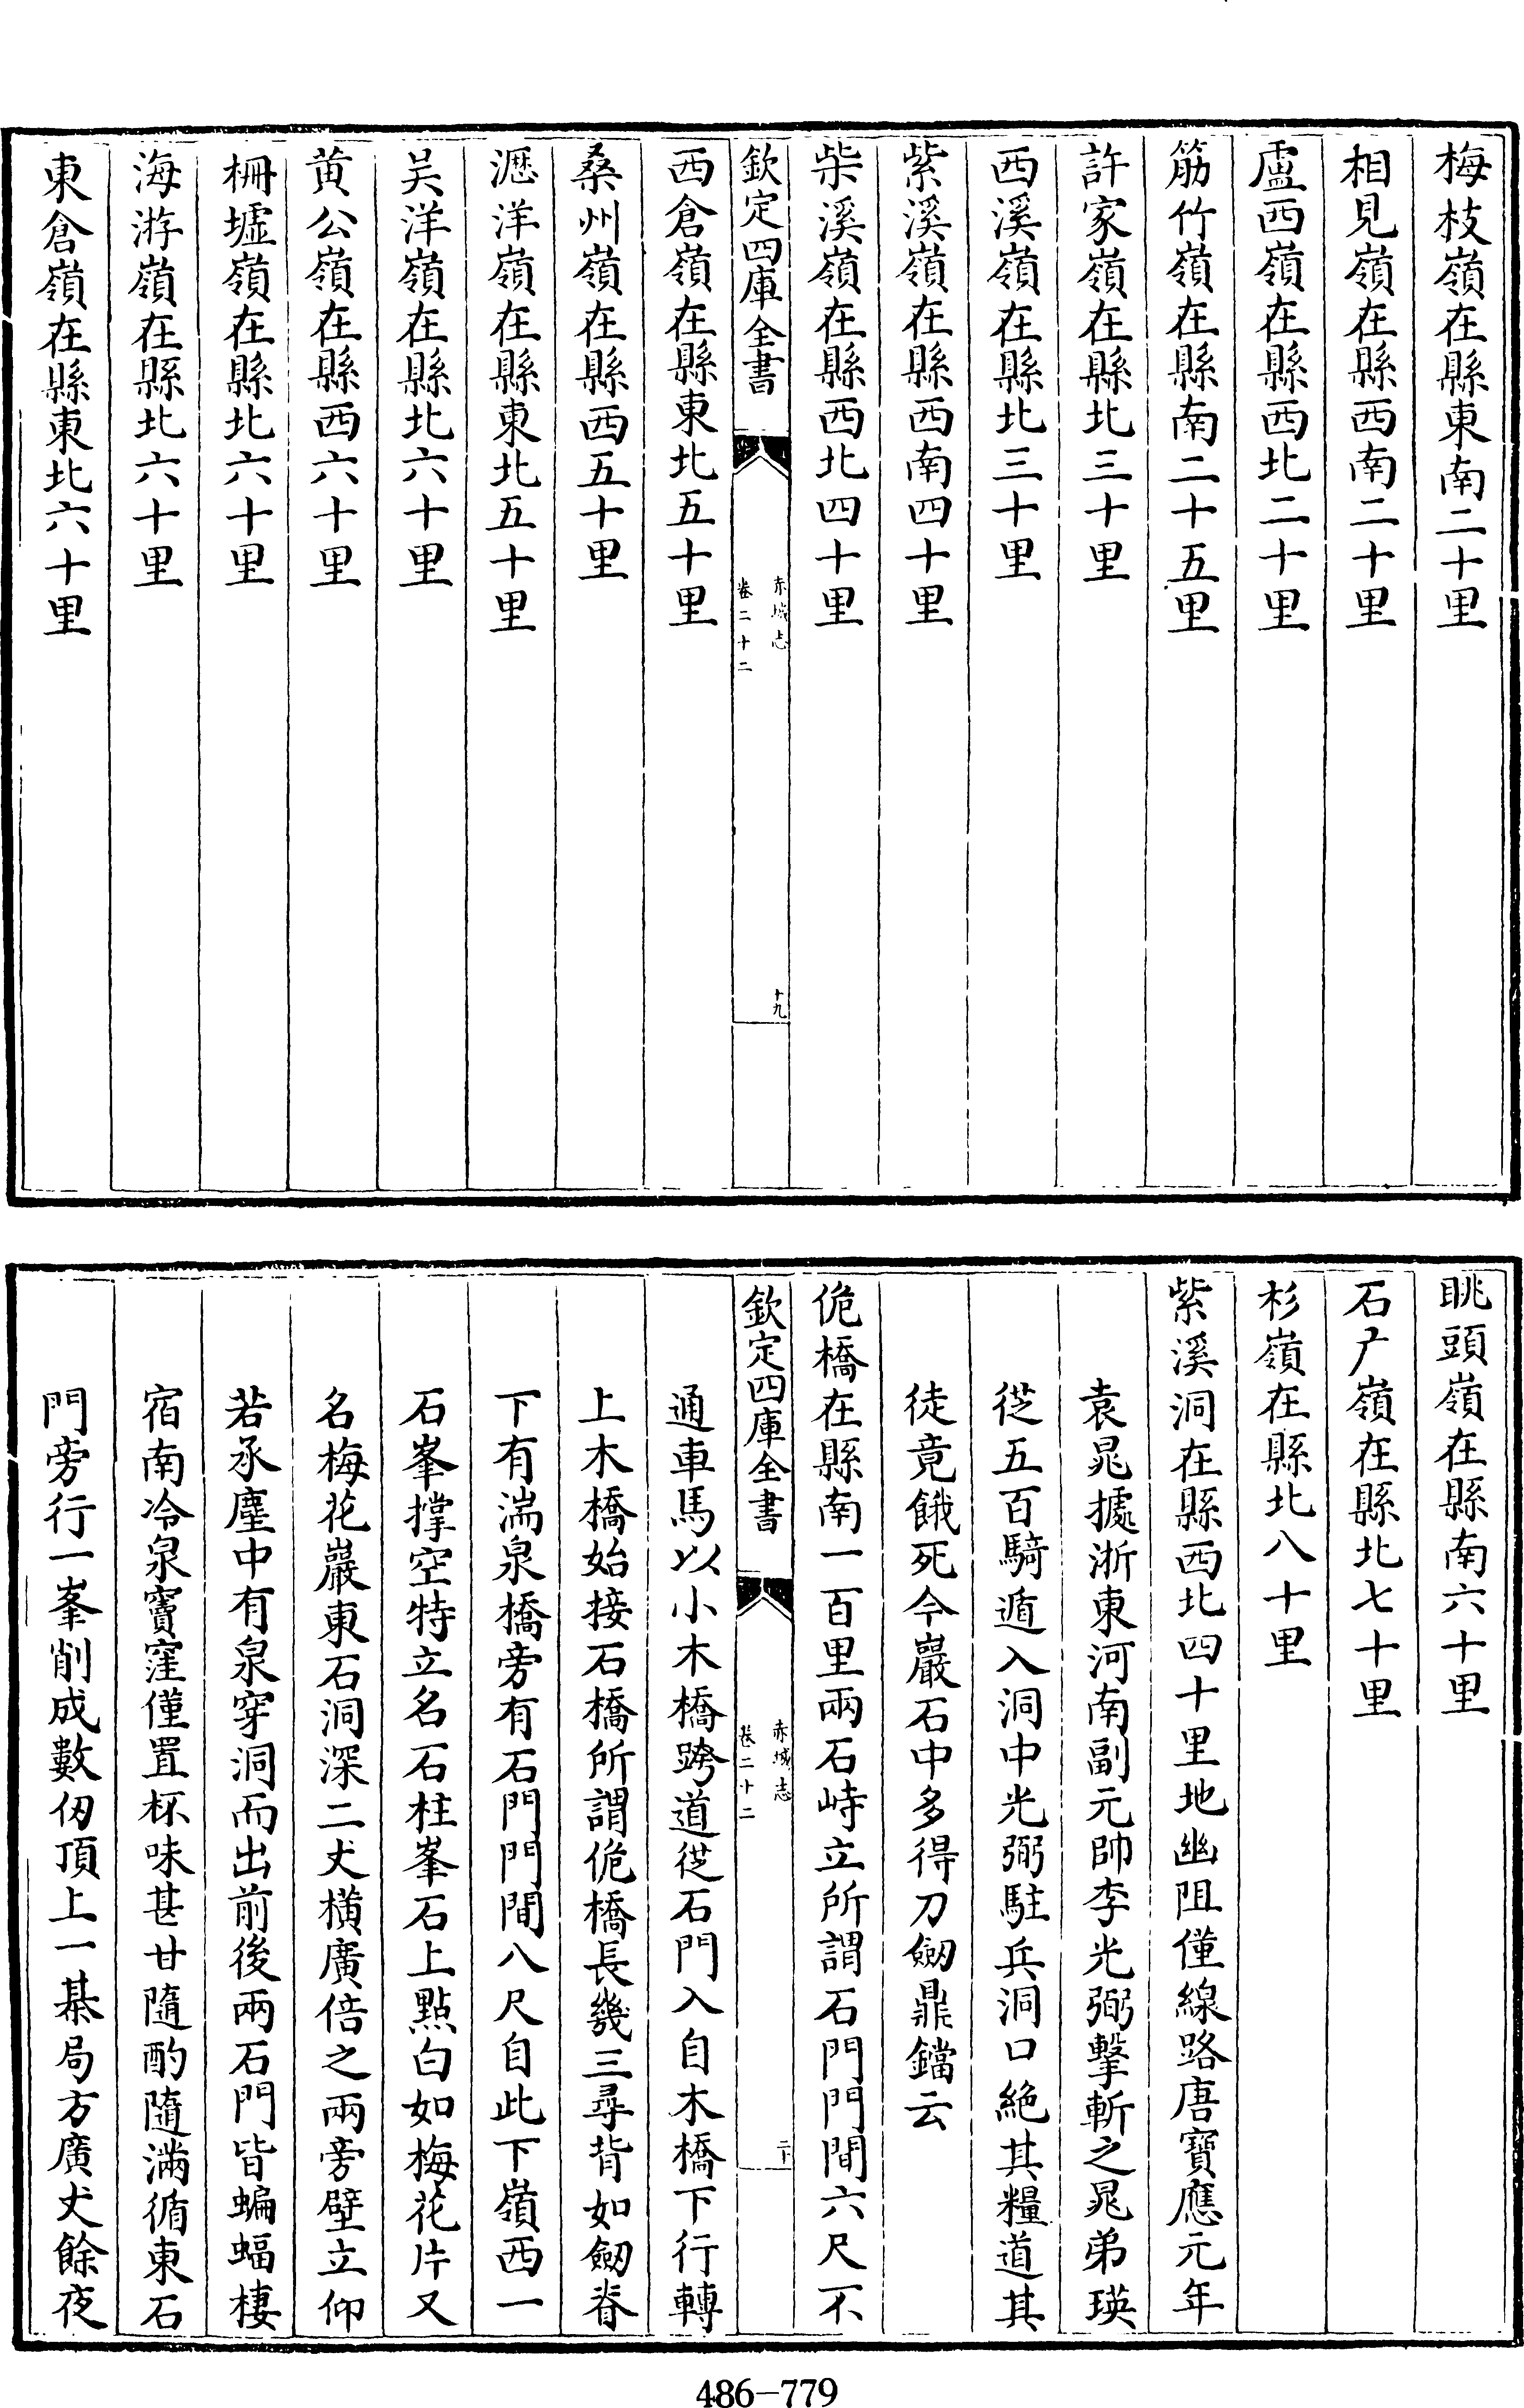 梅枝嶺在縣東南二十里
相見嶺在縣西南二十里
盧西嶺在縣西北二十里
筋竹嶺在縣南二十五里
許家嶺在縣北三十里
西溪嶺在縣北三十里
紫溪嶺在縣西南四十里
柴溪嶺在縣西北四十里
欽定四庫全書
赤城志
卷二十二
十九
西倉嶺在縣東北五十里
桑州嶺在縣西五十里
瀝洋嶺在縣東北五十里
吴洋嶺在縣北六十里
黄公嶺在縣西六十里
柵墟嶺在縣北六十里
海游嶺在縣北六十里
東倉嶺在縣東北六十里
眺頭嶺在縣南六十里
石广嶺在縣北七十里
杉嶺在縣北八十里
紫溪洞在縣西北四十里地幽阻僅線路唐寶應元年
袁晁據浙東河南副元帥李光弼擊斬之晁弟瑛
従五百騎遁入洞中光弼駐兵洞口絶其糧道其
徒竟餓死今巖石中多得刀劒鼎鐺云
佹橋在縣南一百里兩石峙立所謂石門門間六尺不
欽定四庫全書
赤城志
卷二十二
二十
通車馬以小木橋跨道従石門入自木橋下行轉
上木橋始接石橋所謂佹橋長幾三尋背如劒脊
下有湍泉橋旁有石門門間八尺自此下嶺西一
石峯撑空特立名石柱峯石上點白如梅花片又
名梅花巖東石洞深二丈橫廣倍之兩旁壁立仰
若承塵中有泉穿洞而出前後兩石門皆蝙蝠棲
宿南冷泉竇窪僅置杯味甚甘隨酌隨滿循東石
門旁行一峯削成數仭頂上一棊局方廣丈餘夜
486-779